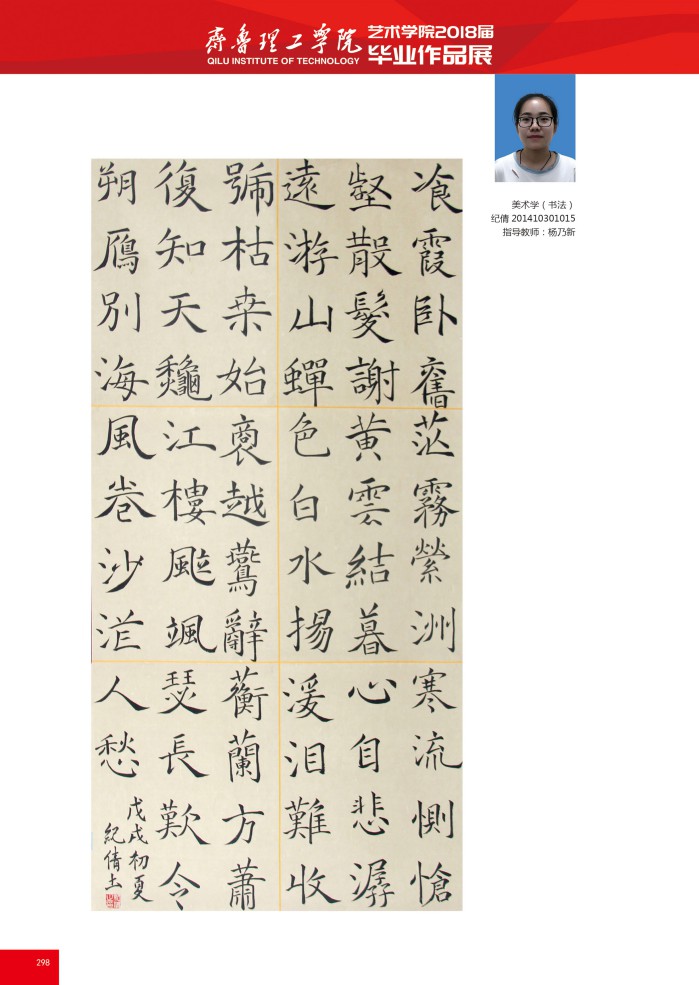 齊魯理工學院
QILU INSTITUTE OF TECHNOLOGY
艺术学院2018届
毕业作品展
美术学（书法）
纪倩 201410301015
指导教师：杨乃新
飡霞卧舊
壑散髮謝
遠游山蟬
號枯桒始
復知天龝
朔鴈別海
裔越鷰辭
江樓䬃颯
風卷沙茫
茫霧縈洲
黃雲結暮
色白水揚
寒流惻愴
心自悲潺
湲泪難收
蘅蘭方蕭
瑟長歎令
人愁
戊戌初夏
紀倩土
298